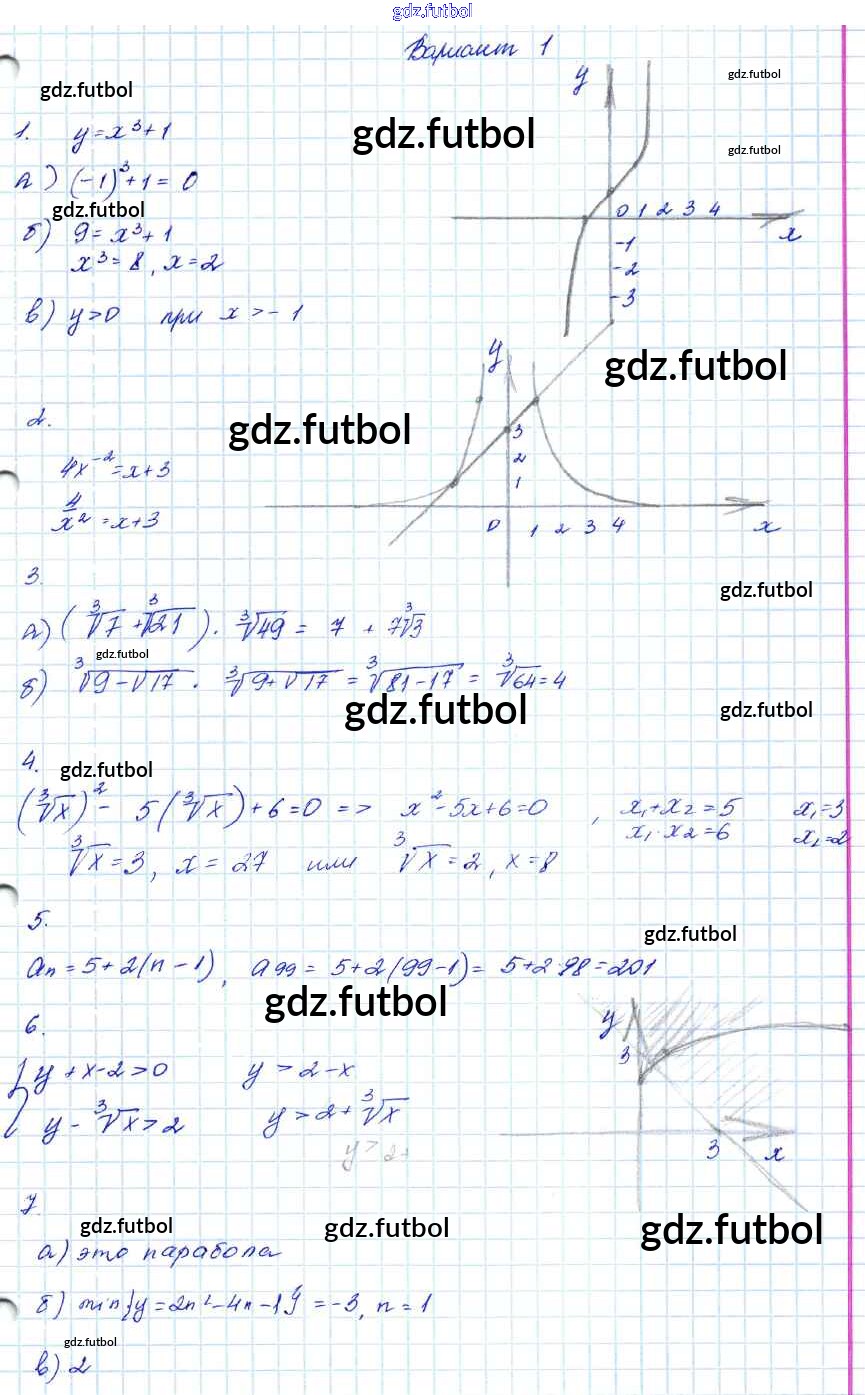 gdz.futbol
Вариант 1
gdz.futbol
gdz.futbol
y
1. y = x³ + 1
gdz.futbol
gdz.futbol
а) (-1)³ + 1 = 0
gdz.futbol
0 1 2 3 4
x
-1
-2
-3
б) 9 = x³ + 1
x³ = 8, x = 2
в) y > 0 при x > -1
y
gdz.futbol
2.
gdz.futbol
3
2
1
4x⁻² = x + 3
4/x² = x + 3
0 1 2 3 4
x
3.
gdz.futbol
а) (∛7 + ∛21) · ∛49 = 7 + 7∛3
gdz.futbol
б) ∛9-√17 · ∛9+√17 = ∛81-17 = ∛64 = 4
gdz.futbol
gdz.futbol
4.
gdz.futbol
(∛x)² - 5(∛x) + 6 = 0 => x² - 5x + 6 = 0, x₁ + x₂ = 5 x₁ = 3
x₁ · x₂ = 6 x₂ = 2
∛x = 3, x = 27 или ∛x = 2, x = 8
5.
gdz.futbol
aₙ = 5 + 2(n - 1), a₉₉ = 5 + 2(99 - 1) = 5 + 2·98 = 201
gdz.futbol
6.
y
3
3
x
{ y + x - 2 > 0 y > 2 - x
y - ∛x > 2 y > 2 + ∛x
y > 2+
7
gdz.futbol
gdz.futbol
gdz.futbol
а) это парабола
б) min{y = 2n² - 4n - 1} = -3, n = 1
gdz.futbol
в) 2